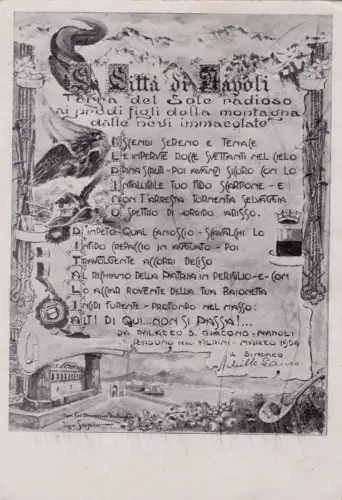 La Città di Napoli
Terra del Sole radioso
ai prodi figli della montagna
dalle nevi immacolate
ASCENDI SERENO E TENACE
LE IMPERVIE ROCCE SVETTANTI NEL CIELO
PRIMA SCRUTI - POI AVANZI SICURO CON LO
INFALLIBILE TUO FIDO SCARPONE - E
NON T'ARRESTA TORMENTA SELVAGGIA
O SPETTRO DI ORRIDO ABISSO.
D'IMPETO - QUAL CAMOSCIO - SCAVALCHI LO
INFIDO CREPACCIO IN AGGUATO - POI
TRAVOLGENTE ACCORRI DECISO
AL RICHIAMO DELLA PATRIA IN PERIGLIO - E - CON
LO ACCIAR ROVENTE DELLA TUA BAIONETTA
INCIDI FURENTE - PROFONDO NEL MASSO:
ALT! DI QUI... NON SI PASSA!...
DA PALAZZO S. GIACOMO - NAPOLI
RADUNO DEGLI ALPINI - MARZO 1954
IL SINDACO
Achille Lauro